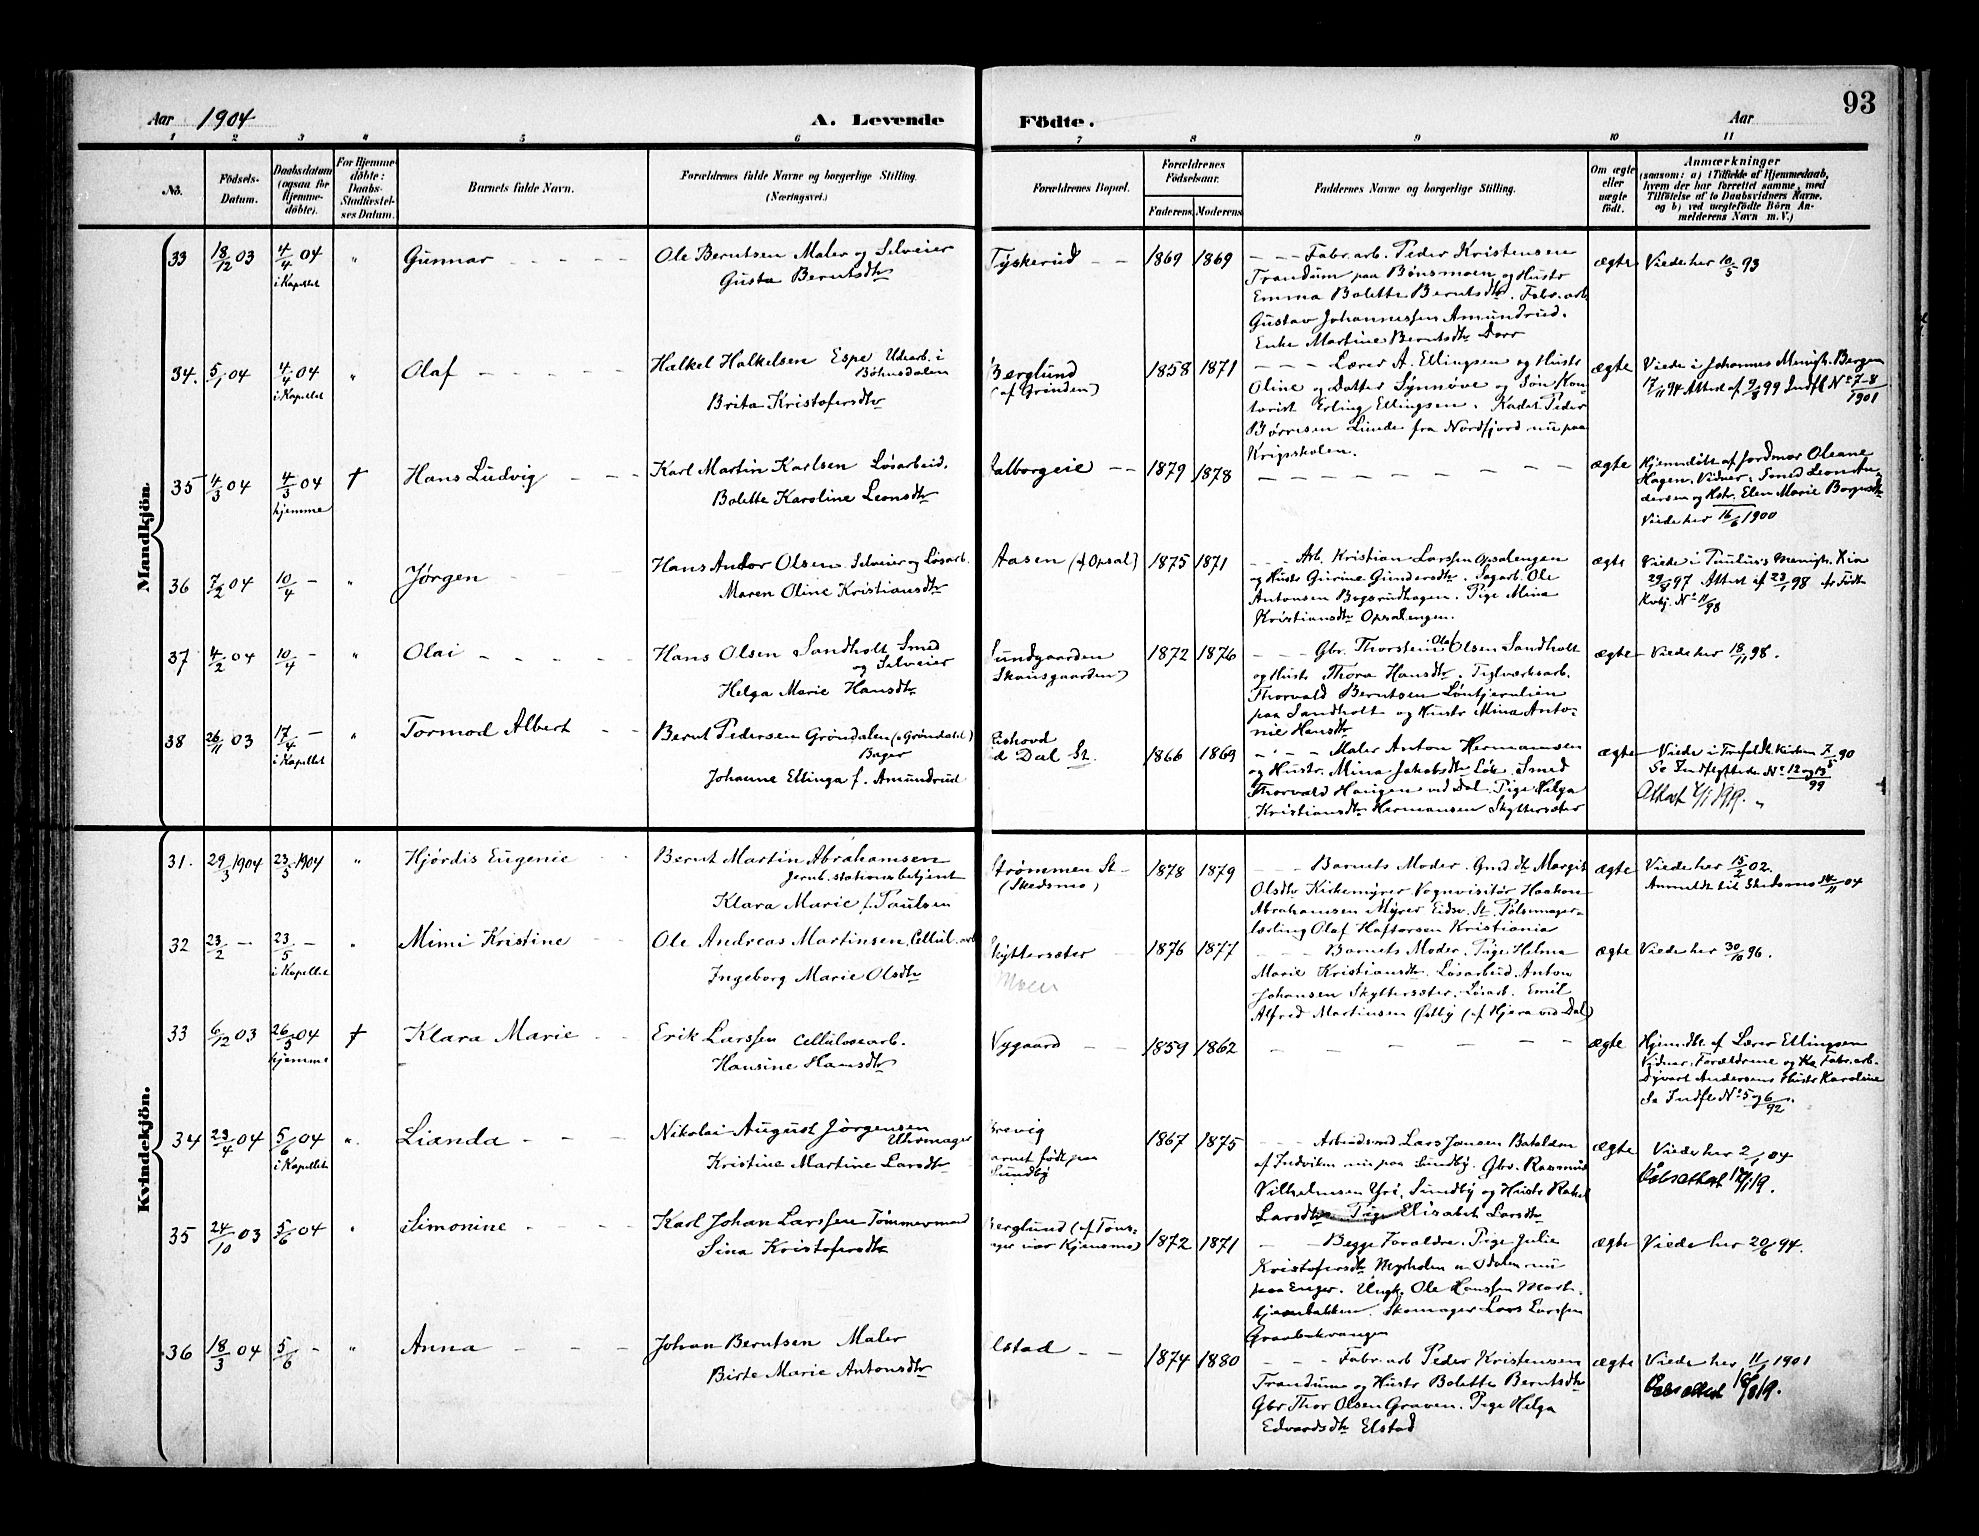 93
Aar 1904 A. Levende Födte. Aar
1 2 3 4 5 6 7 8 9 10 11
No.
Födsels-
Datum.
Daabsdatum
(ogsaa for
Hjemme-
döbte).
For Hjemme-
döbte:
Daabs-
Stadfæstel-
ses Datum.
Barnets fulde Navn.
Forældrenes fulde Navne og borgerlige Stilling.
(Næringsvei.)
Forældrenes Bopæl.
Forældrenes
Födselsaar.
Faderens. Moderens.
Faddernes Navne og borgerlige Stilling.
Om ægte
eller
uægte
født.
Anmærkninger
(saasom: a) i Tilfælde af Hjemmedaab,
hvem der har forrettet samme, med
Tilföielse af to Daabsvidners Navne,
og b) ved uægtefödte Börn An-
melderens Navn m. V.)
Mandkjön.
33 18/12 03 4/4 04 " Gunnar
i Kapellet
Ole Berntsen Maler og Selveier
Gusta Berntsdtr
Tyskerud 1869 1869
Fabr. arb. Peder Kristensen
Trandum paa Bönsmoen og Hustr
Emma Bolette Berntsdtr. Fabr. arb.
Gustav Johannessen Amundrud.
Enke Martine Berntsdtr Dorr
ægte Viede her 10/5 93
34. 5/1 04 4/4 04 " Olaf
i Kapellet
Halkel Halkelsen Espe Udearb. i
Böhnsdalen
Brita Kristofersdtr
Berglund
(af Grinden)
1858 1871
Lærer A. Ellingsen og Hustr
Oline og Datter Synnöve og Sön Kon-
torist Erling Ellingsen. Kadet Peder
Börresen Lunde fra Nordfjord nu paa
Krigsskolen.
ægte Viede i Johannes Menigh. Bergen
17/11 94 Attest af 9/8 99 Indfl No 7-8/1901
35 4/3 04 4/3 04 † Hans Ludvig
hjemme
Karl Martin Karlsen Lösarbeid.
Bolette Karoline Leonsdtr
alborgeie 1879 1878
ægte Hjemdöbt af Jordmor Oleane
Hagen. Vidner: Smed Leon An-
dersen og Hstr. Elen Marie
Viede her 16/6 1900
36 7/2 04 10/4 - " Jørgen
Hans Anton Olsen. Selveier og Løsarb.
Maren Oline Kristiansdtr
Aasen (af Opsal) 1875 1871
Arb. Kristian Larssen Opsalengen
og Hustr Gurine Gundersdtr. Sagarb. Ole
Antonsen Bogsrudhagen. Pige Mina
Kristiansdtr Opsalengen.
ægte Viede i Paulus Menigh. Kra
29/8 97 Attest af 23/1 98 Födt
Kvkj. No 11/98
37 4/2 04 10/4 - " Olai
Hans Olsen Sandholt Smed
og Selveier
Helga Marie Hansdtr
Sundgaarden
Skausgaarden)
1872 1876
Gbr. Thorstein Olaf Olsen Sandholt
og Hustr Thora Hansdtr. Teglværksarb.
Thorvald Berntsen Löntjernlien
paa Sandholt og Hustr Mina Anto-
nie Hansdtr
ægte Viede her 18/11 98.
38 26/11 03 17/4 - " Tormod Albert
i Kapellet
Bernt Pedersen Gröndalen (Gröndahl)
Bager
Johanne Ellinga f. Amundrud
Rishovd
Dal St.
1866 1869
Maler Anton Hermansen
og Hustr. Mina Jakobsdtr Löke. Smed
Thorvald Haugen ved Dal. Pige Helga
Kristiansdtr Hermansen Skyttersæter
ægte Viede i Trefoldh. Kirken 7/5 90
Se Indflyttede No 12 og 13/99
Attest 4/1 1919.
Kvindekjön.
31. 29/3 1904 23/5 1904 " Hjördis Eugenie
Bernt Martin Abrahamsen
Jernb. stationsbetjent
Klara Marie f. Paulsen
Strømmen St
(Skedsmo)
1878 1879
Barnets Moder. Gmd dtr Margit
Olsdtr Kirkemyrer Vognvisitör Haakon
Abrahamsen Myrer Eidsv. St. Pölsemager-
lærling Olaf Haftorsen Kristiania
ægte Viede her 15/2 02.
Anmeldt til Skedsmo 14/11 04
32 23/2 - 23/5 - " Mimi Kristine
i Kapellet
Ole Andreas Martinsen, Cellul. arb
Ingeborg Marie Olsdtr
kyttersæter
Moen
1876 1877
Barnets Moder. Pige Helma
Marie Kristiansdtr. Lösarbeid. Anton
Johansen Skyttersæter. Lösarb. Emil
Alfred Martinsen Østby (af Hjera ved Dal)
ægte Viede her 30/10 96.
33 6/12 03 26/5 04 † Klara Marie
hjemme
Erik Larssen Cellulosearb.
Hansine Hansdtr
Nygaard 1859 1862
ægte Hjem.dbt. af Lærer Ellingsen
Vidner: Forældrene og Fabr. arb.
Syvert Andersens Hustr Karoline
Se Indfl No 5 og 6/92.
34 23/4 04 5/6 04 " Lianda
i Kapellet
Nikolai August Jörgensen
Uhrmager
Kristine Martine Larsdtr
Brevig
arnet født paa
Sundby
1867 1875
Arbeidsmd Lars Jonsen Batalden
af Indviken nu paa Sundby. Gbr. Rasmus
Vilhelmsen Yri, Sundby og Hustr Rakel
Larsdtr. Pige Elisabet Larsdtr
ægte Viede her 2/1 04
Døbsattest 19.
35 24/10 03 5/6 04 " Simonine
Karl Johan Larssen Tömmermand
Sina Kristofersdtr
Berglund (af Töms-
ager var Kjensmo)
1872 1871
Begge Foraldre. Pige Julie
Kristofersdtr Myrholen u. Dalen nu
paa Enger. Ungk. Ole Hanssen Mort-
kjernbakken. Skomager Lars Larssen
Graabekvangen
ægte Viede her 20/6 94.
36 18/3 04 5/6 - " Anna
Johan Berntsen Maler
Birte Marie Antonsdtr
lstad 1874 1880
Fabr. arb Peder Kristensen
Trandum og Hustr Bolette Berntsdtr
Gbr Thor Olsen Graven. Pige Helga
Edvardsdtr Elstad
ægte Viede her 11/1 1901
Døbsattest 19.